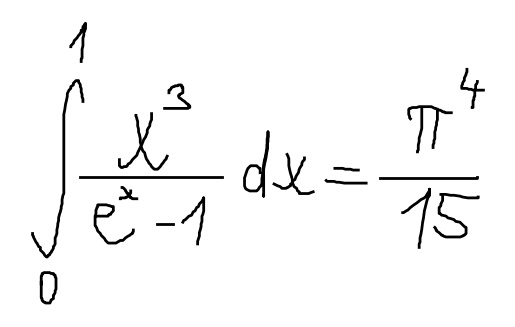 \int_0^1 \frac{x^3}{e^x - 1} dx = \frac{\pi^4}{15}